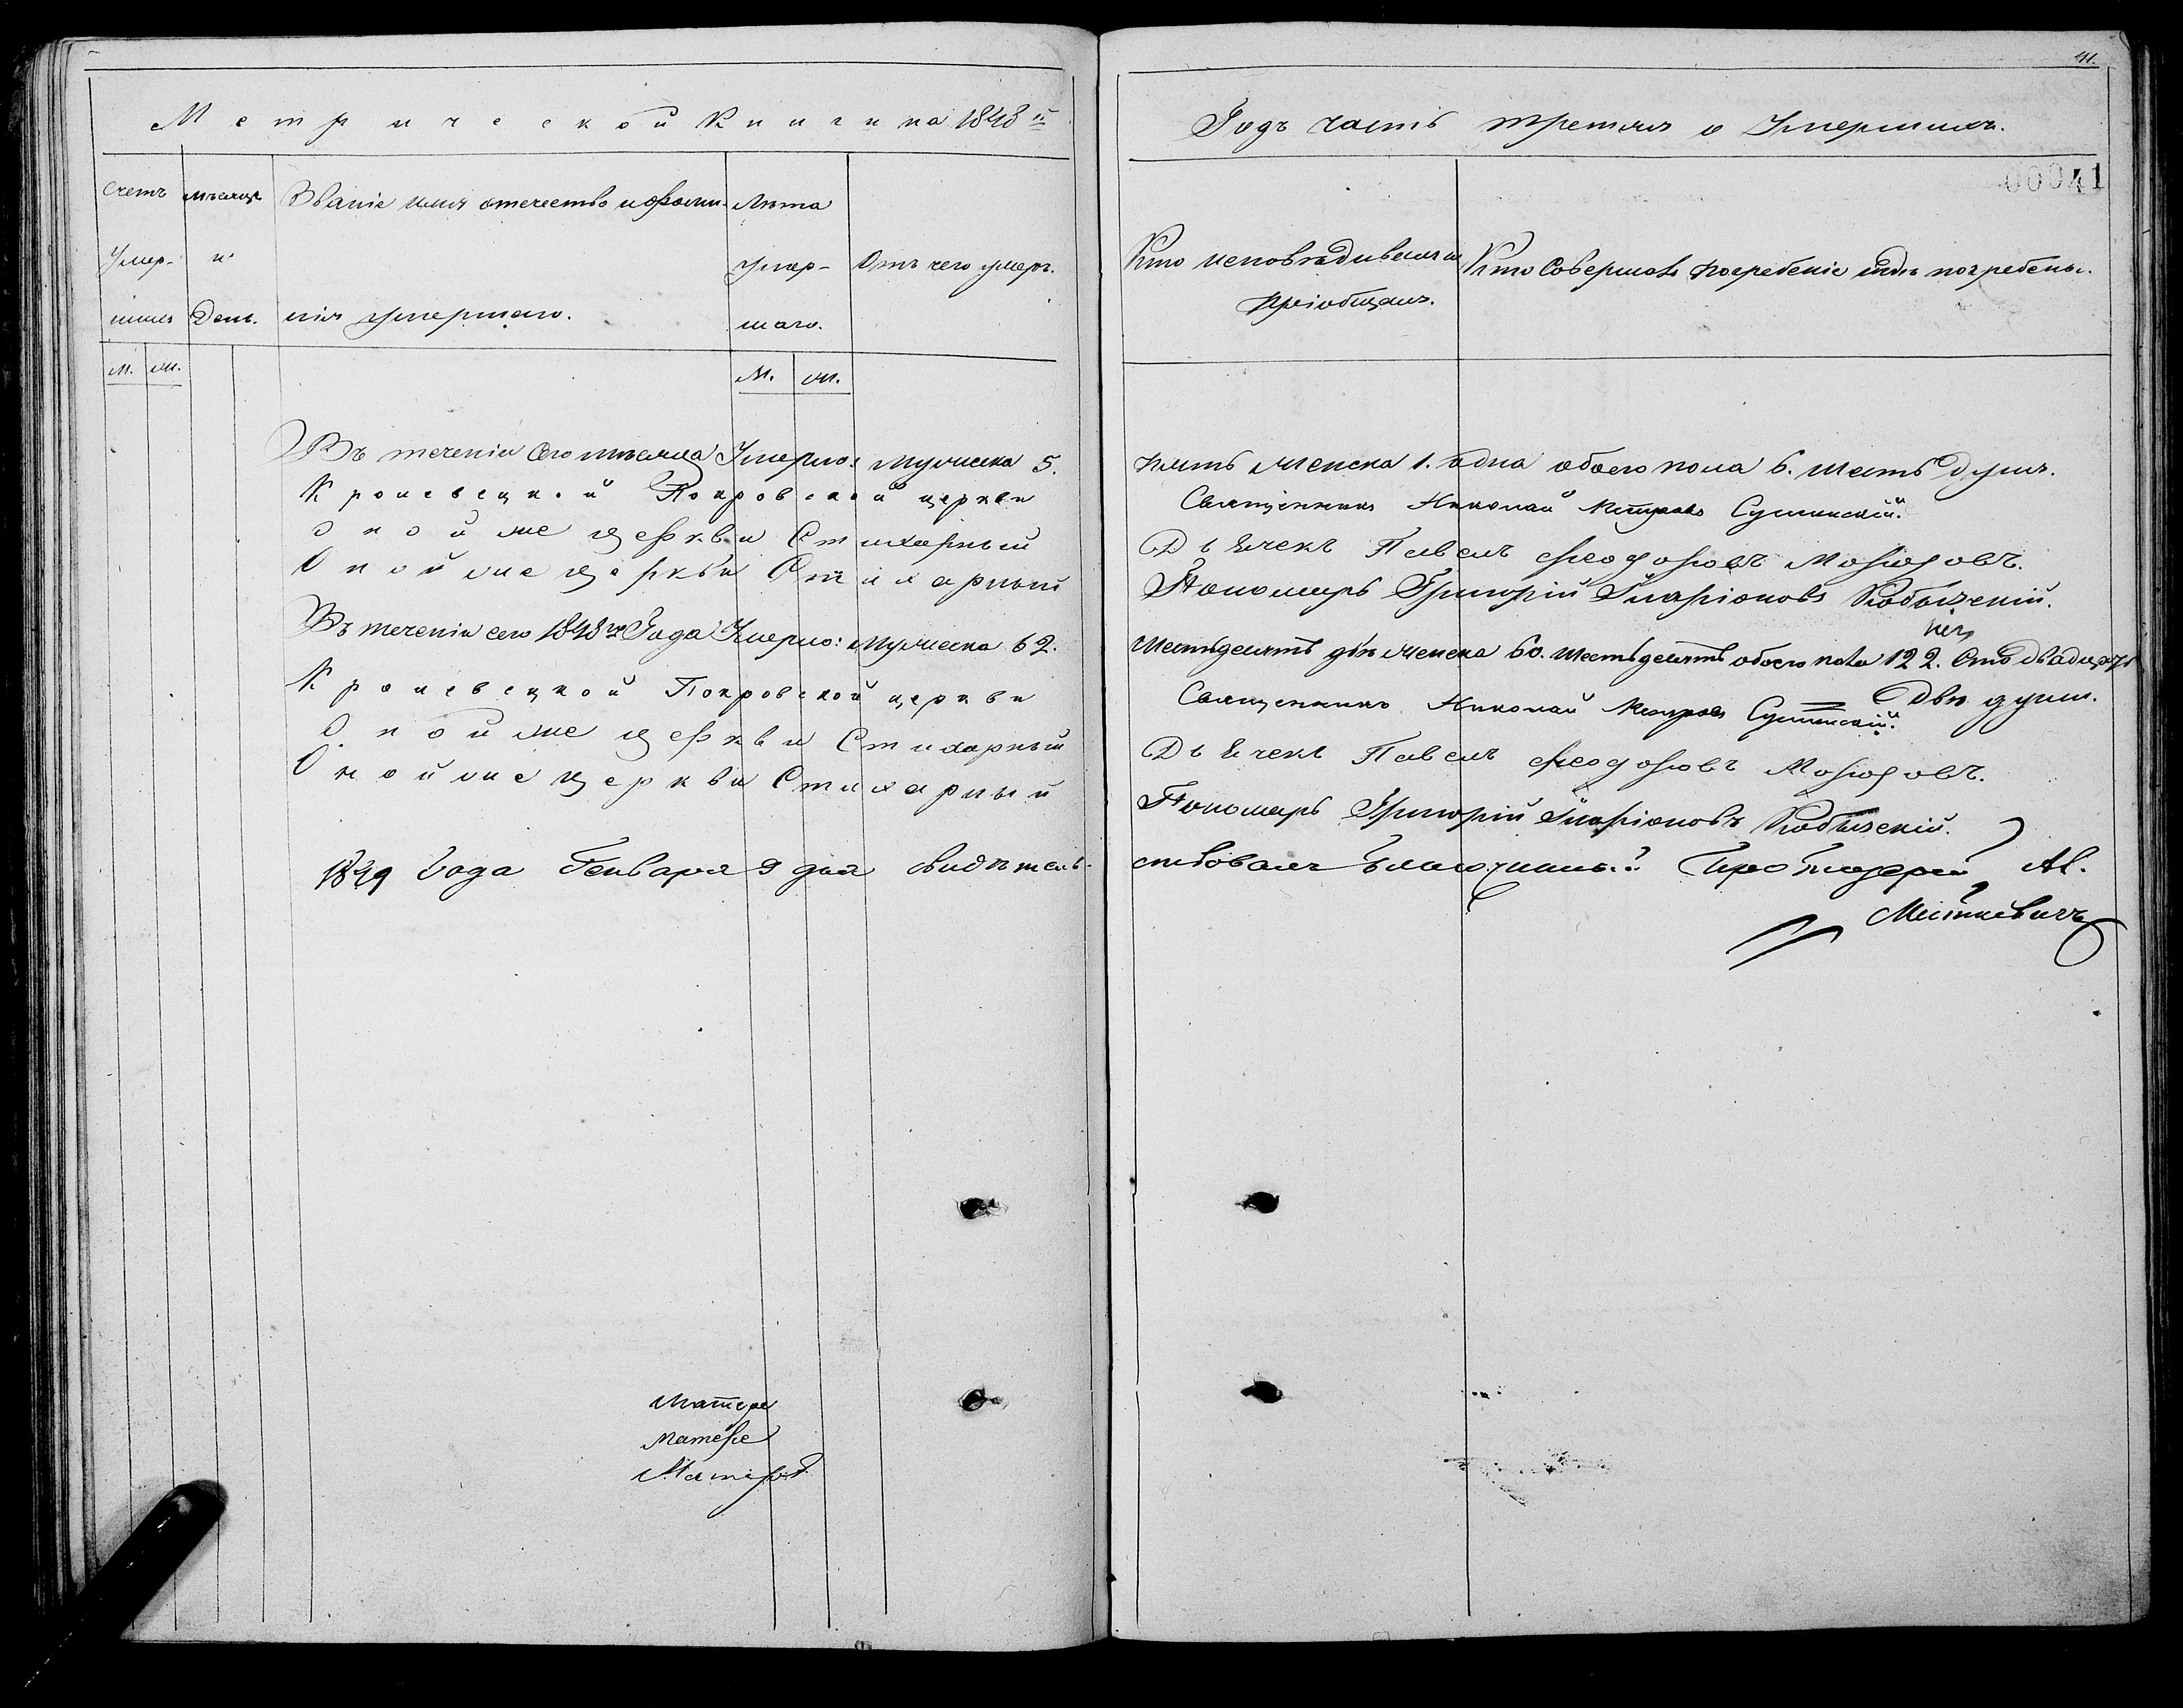 41.
Метрической Книги на 1848й
Годъ часть третья о Умершихъ.
00041
Счетъ умер-шихъ
мѣсяцъ и День.
Званіе имя отечество и фами-лія умершаго.
Лѣта умер-шаго.
Отъ чего умеръ.
Кто исповѣдывалъ и пріобщалъ.
Кто Совершалъ погребеніе и гдѣ погребены.
М. Ж.
М. Ж.
Въ теченіи сего мѣсяца Умерло: мужеска 5. пять женска 1. одна обоего пола 6. шесть душъ.
Кролевецкой Покровской церкви Священникъ Николай Петровъ Сушинскій.
Оной же церкви Стихарный Дьячекъ Павелъ Феодоровъ
Оной же церкви Стихарный Пономарь Григорій Иларіоновъ
Въ теченіи сего 1848го Года Умерло: мужеска 62. шестьдесятъ двѣ женска 60. шестьдесятъ обоего пола 122. Сто двадцать
двѣ душъ.
Кролевецкой Покровской церкви Священникъ Николай Петровъ Сушинскій.
Оной же церкви Стихарный Дьячекъ Павелъ Феодоровъ
Оной же церкви Стихарный Пономарь Григорій Иларіоновъ
1849 Года Генваря 9 дня свидѣтель-ствовалъ Благочинный Протоіерей